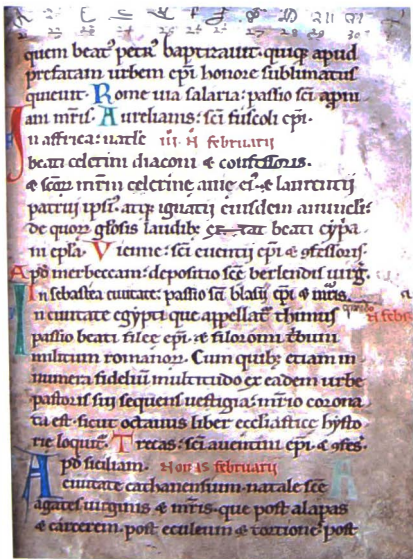 22 23 25 26 27 28 29 30
quem beat' petr' baptizauit. quiq; apud
prefatam urbem ep̄i honore sublimatus
quieuit. Rome uia salaria: passio sc̄i apni
ani m̄ris. Aurelianis: sc̄i fusculi ep̄i.
In affrica: natle iii. N februarij
beati celerini diaconi & confessoris.
& sc̄oꝝ mr̄m celerine auie ei'. & laurentij
patruj ipsi'. atq; ignatij eiusdem auunculi:
de quoꝝ gl̄osis laudibꝫ beati cypa
ni epl̄a. Vienne: sc̄i euentij ep̄i & 9fessoris.
Apđ merbeccam: depositio sc̄e berlendis uirḡ.
In sebastea ciuitate: passio sc̄i blasij ep̄i & m̄ris.
In ciuitate egypti que appellat̄ thimuis N febr
passio beati filee ep̄i. & filoromi tⁱbuni
militum romanoꝝ. Cum quibꝫ etiam in
numera fideliū multitudo ex eadem urbe
pastoris sui sequens uestigia: mr̄io corona
ta est. sicut octauus liber ecclīastice hysto
rie loquit̄. Trecas: sc̄i auentini ep̄i. & 9fes̄.
Apđ siciliam. Nonis februarij
ciuitate cathanensium. natale sc̄e
agathes uirginis & m̄ris. que post alapas
& carcerem. post eculeum & tortione. post